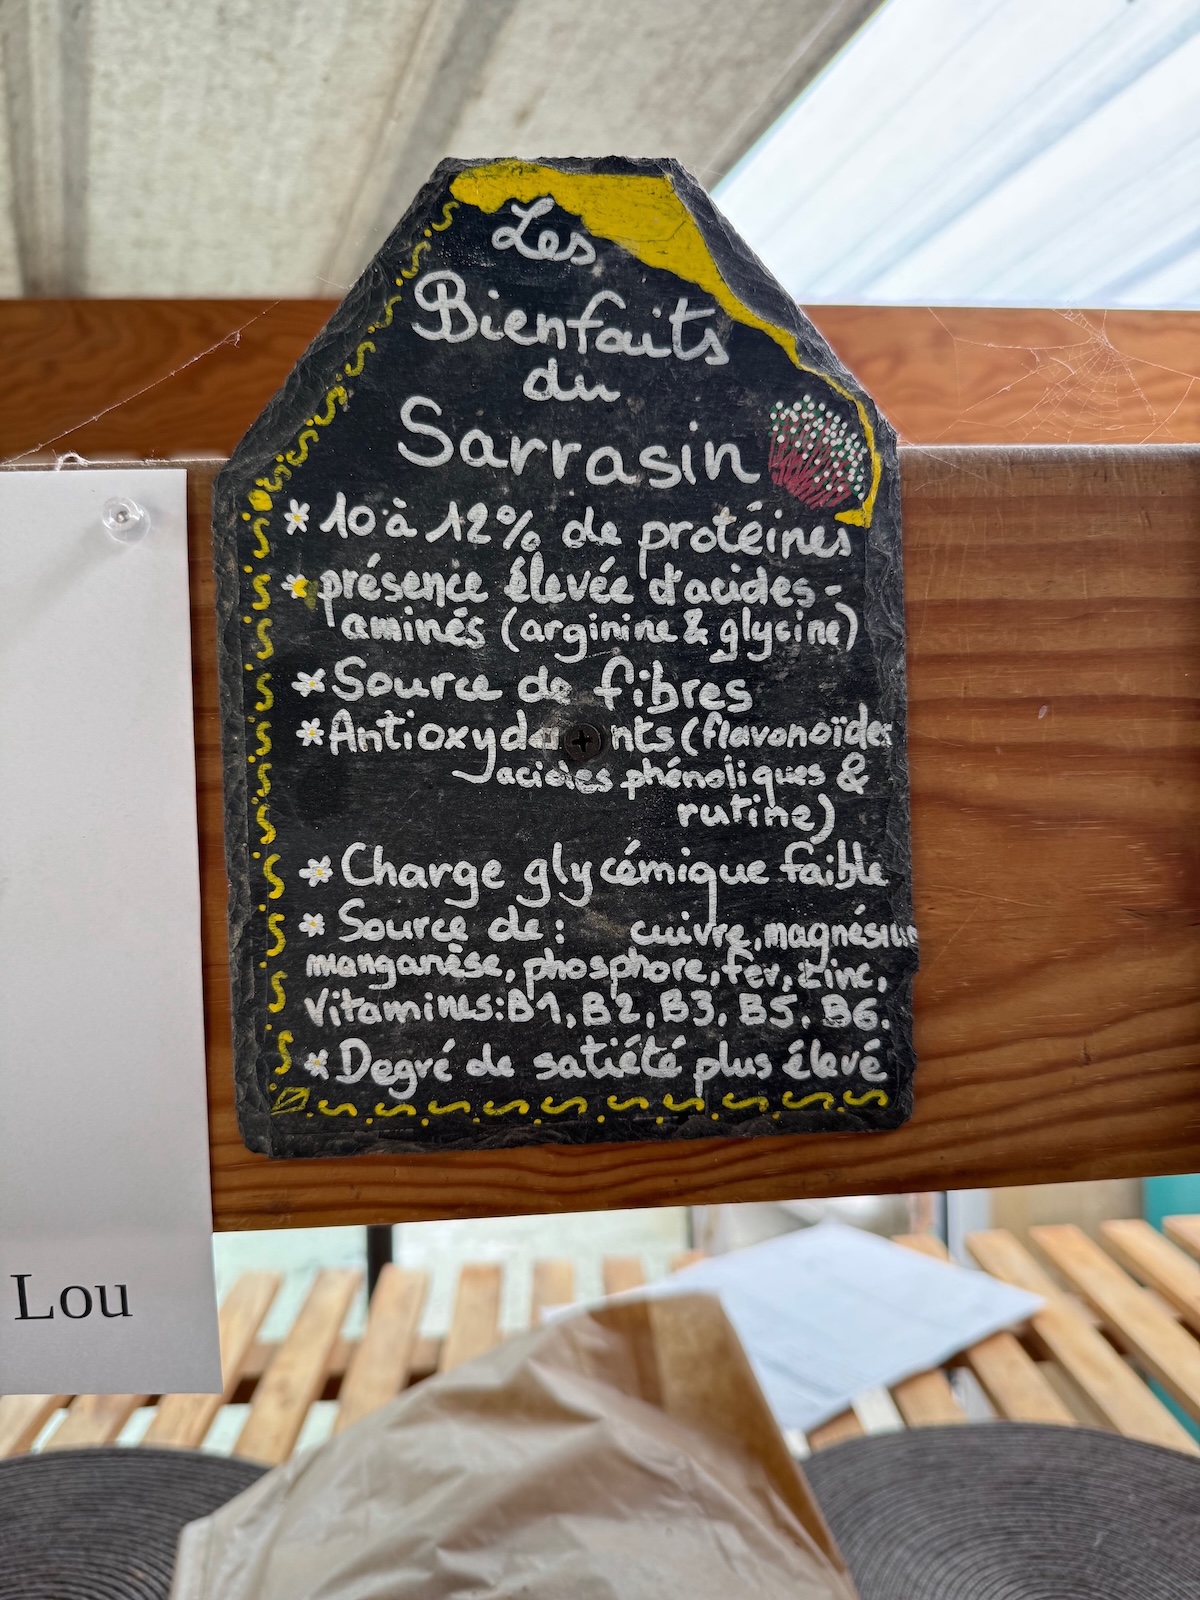 Les
Bienfaits
du
Sarrasin
* 10 à 12% de protéines
* présence élevée d'acides-
aminés (arginine & glycine)
* Source de fibres
* Antioxydants (flavonoïdes
acides phénoliques &
rutine)
* Charge glycémique faible
* Source de : cuivre, magnésium
manganèse, phosphore, fer, zinc,
Vitamines: B1, B2, B3, B5, B6.
* Degré de satiété plus élevé
Lou